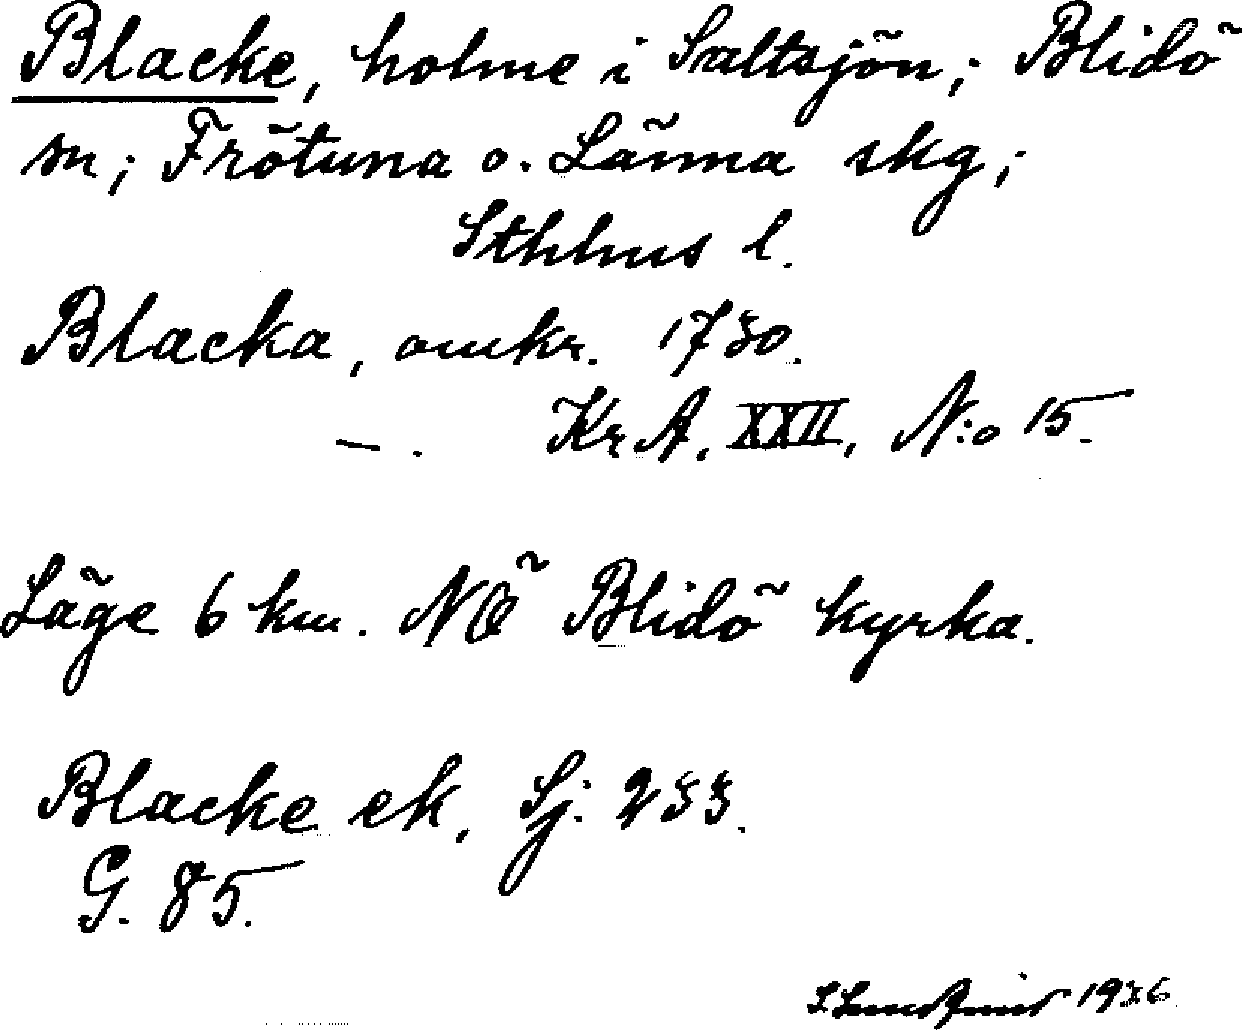 Blacke, holme i Saltsjön; Blidö
sn; Frötuna o. Länna skg;
Sthlms l.
Blacka, omkr. 1730.
— . KrA. XXII, N:o 15.
Läge 6 km. NÖ Blidö kyrka.
Blacke ek, Sj. 233.
G. 85.
1936